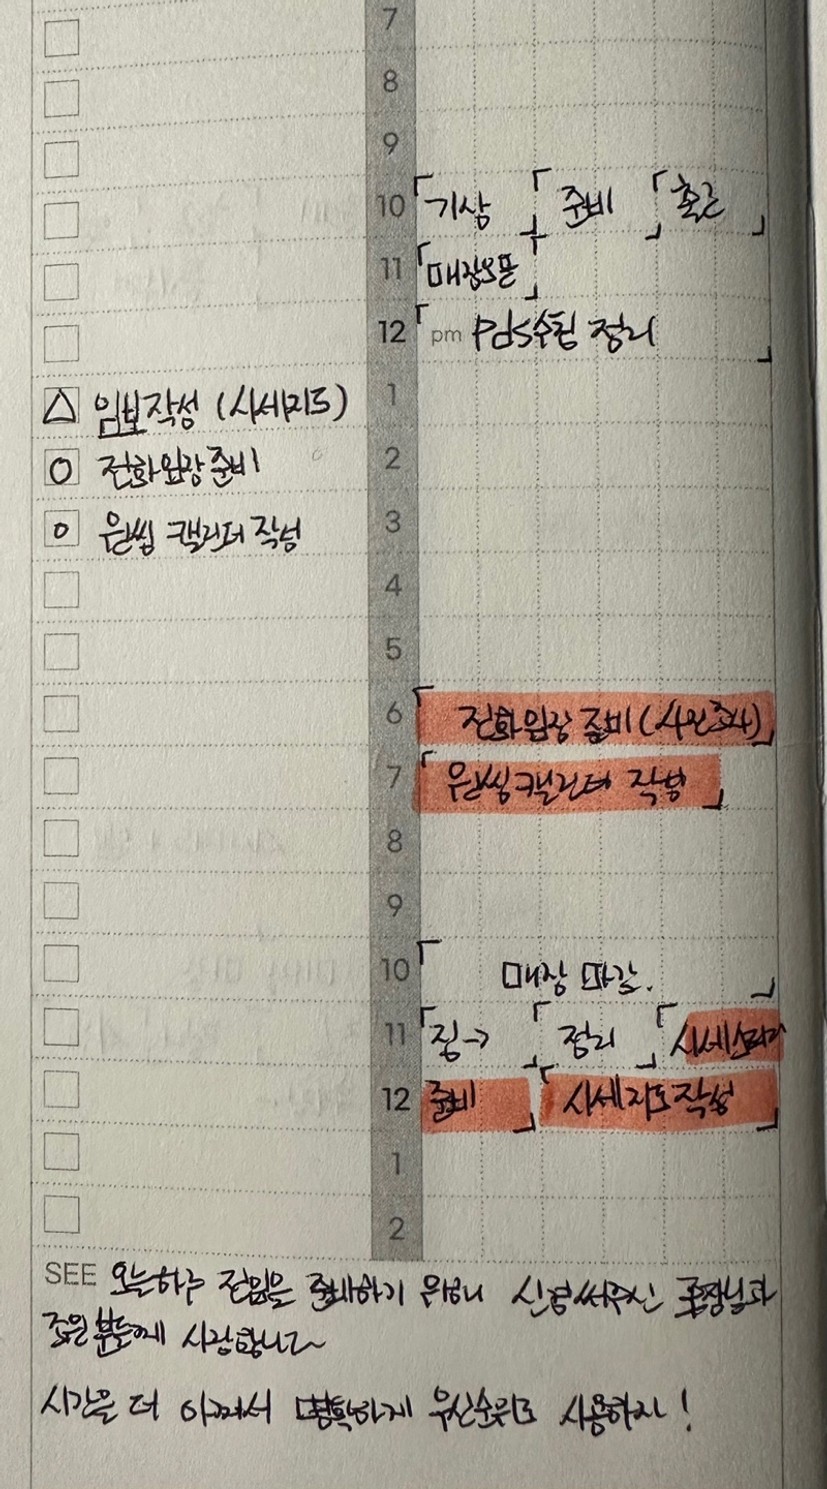 7
8
9
10 기상 준비 출근
11 매장오픈
12 pm PdS수첩 정리
△ 임보작성 (시세지도) 1
○ 전화임장 준비 2
○ 원씽 캘린더 작성 3
4
5
6 전화임장 준비 (사전조사)
7 원씽캘린더 작성
8
9
10 매장 마감.
11 집→ 정리 시세
12 준비 시세지도작성
1
2
SEE 오늘하루 전임을 준비하기 위해 신경써주신 조장님과
조원분들께 사랑합니다~
시간을 더 아껴서 명확하게 우선순위로 사용하자!